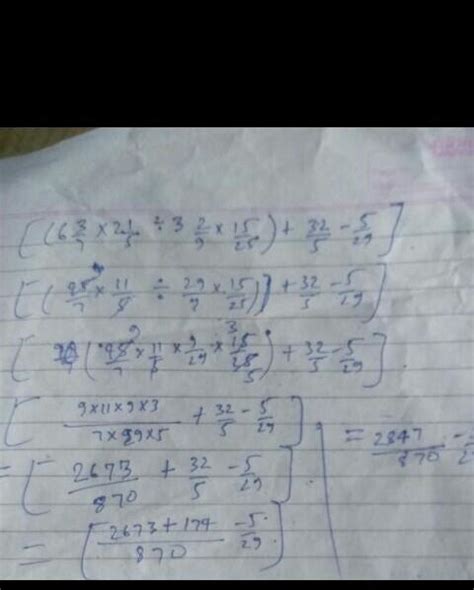 [(6 3/7 × 2 1/5 ÷ 3 2/9 × 15/25) + 32/5 - 5/29]
[(45/7 × 11/5 ÷ 29/9 × 15/25)] + 32/5 - 5/29]
[(45/7 × 11/5 × 9/29 × 15/25) + 32/5 - 5/29]
[9×11×9×3/7×29×5 + 32/5 - 5/29]
= [2673/870 + 32/5 - 5/29]
= [2673+174/870 - 5/29]
= 2847/870 - 5/29